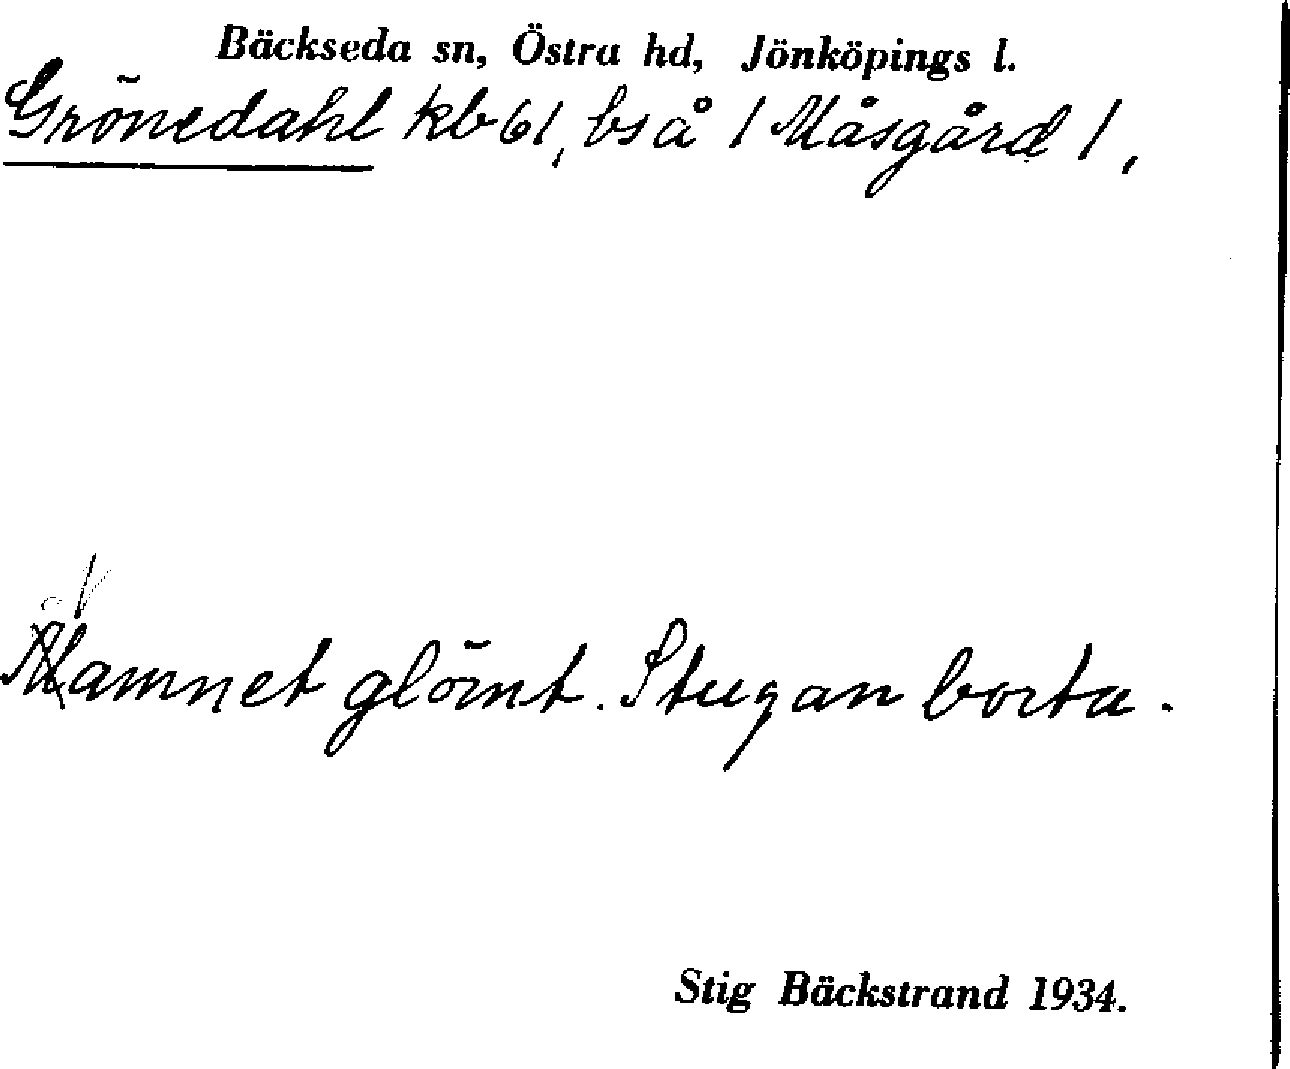 Bäckseda sn, Östra hd, Jönköpings l.
Grönedahl kb 61, bs å / Måsgård /,
Namnet glömt. Stugan borta.
Stig Bäckstrand 1934.